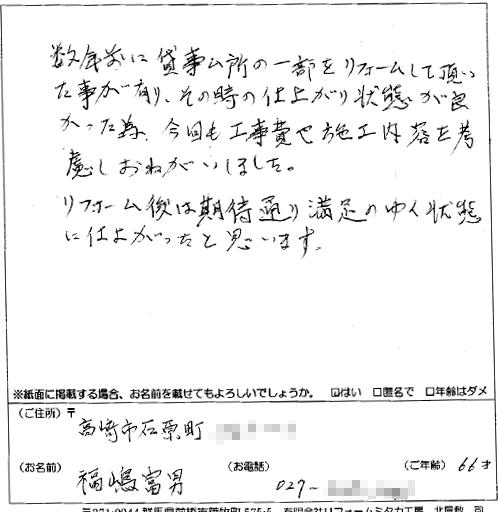 数年前に貸事ム所の一部をリフォームして頂い
た事が有り、その時の仕上がり状態が良
かった為、今回も工事費や施工内容を考
慮しおねがいしました。
リフォーム後は期待通り満足のゆく状態
に仕上がったと思います。
※紙面に掲載する場合、お名前を載せてもよろしいでしょうか。 ☑はい □匿名で □年齢はダメ
(ご住所) 〒
高崎市石原町
(お名前) 福嶋富男 (お電話) 027- (ご年齢) 66才
〒371-0044 群馬県前橋市荒牧町 575-5 有限会社リフォームミタカ工房